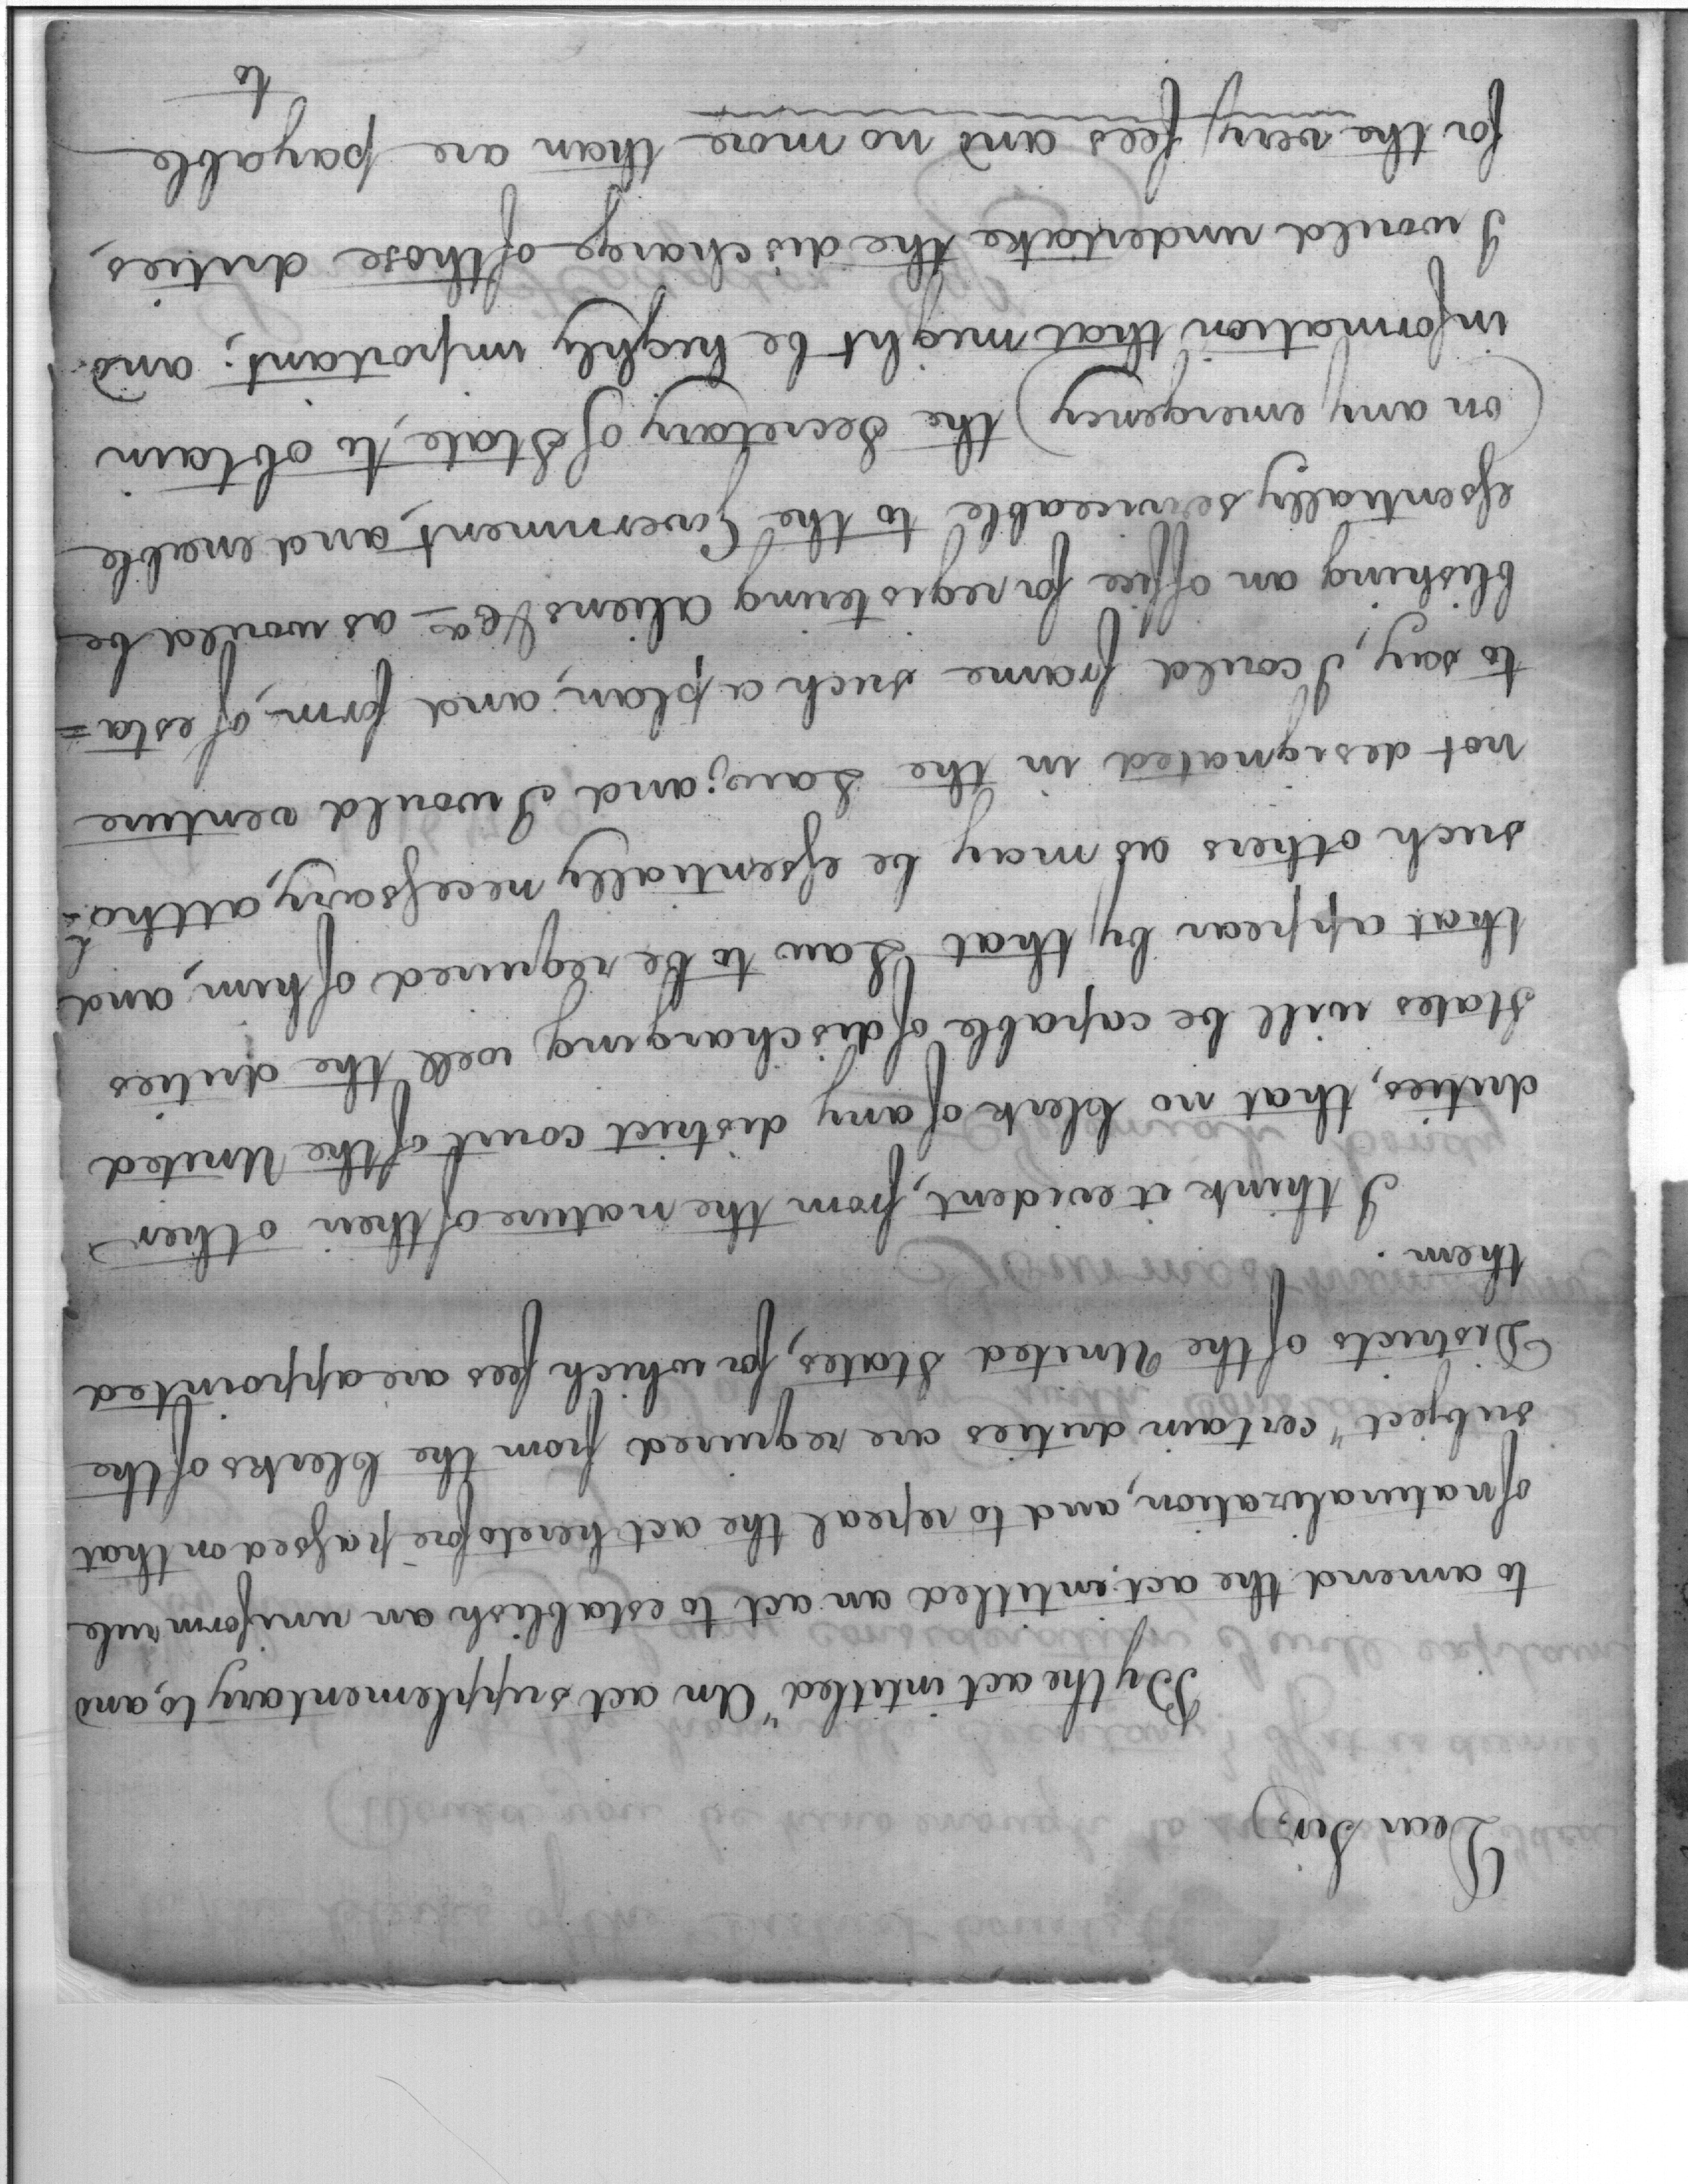 Dear Sir,
By the act intitled "An act supplementary to, and
to amend the act, entitled an act to establish an uniform rule
of naturalization, and to repeal the act heretofore passed on that
subject" certain duties are required from the Clerks of the
Districts of the United States, for which fees are appointed
them.
I think it evident, from the nature of their other
duties, that no Clerk of any district court of the United
States will be capable of discharging well the duties
that appear by that Law to be required of him, and
such others as may be essentially necessary, altho'
not designated in the Law; and I would venture
to say, I could frame such a plan, and form, of esta=
blishing an office for registering Aliens &ca - as would be
essentially serviceable to the Government, and enable
(on any emergency) the Secretary of State, to obtain
information that might be highly important; and
I would undertake the discharge of those duties,
for the very fees and no more than are payable
to